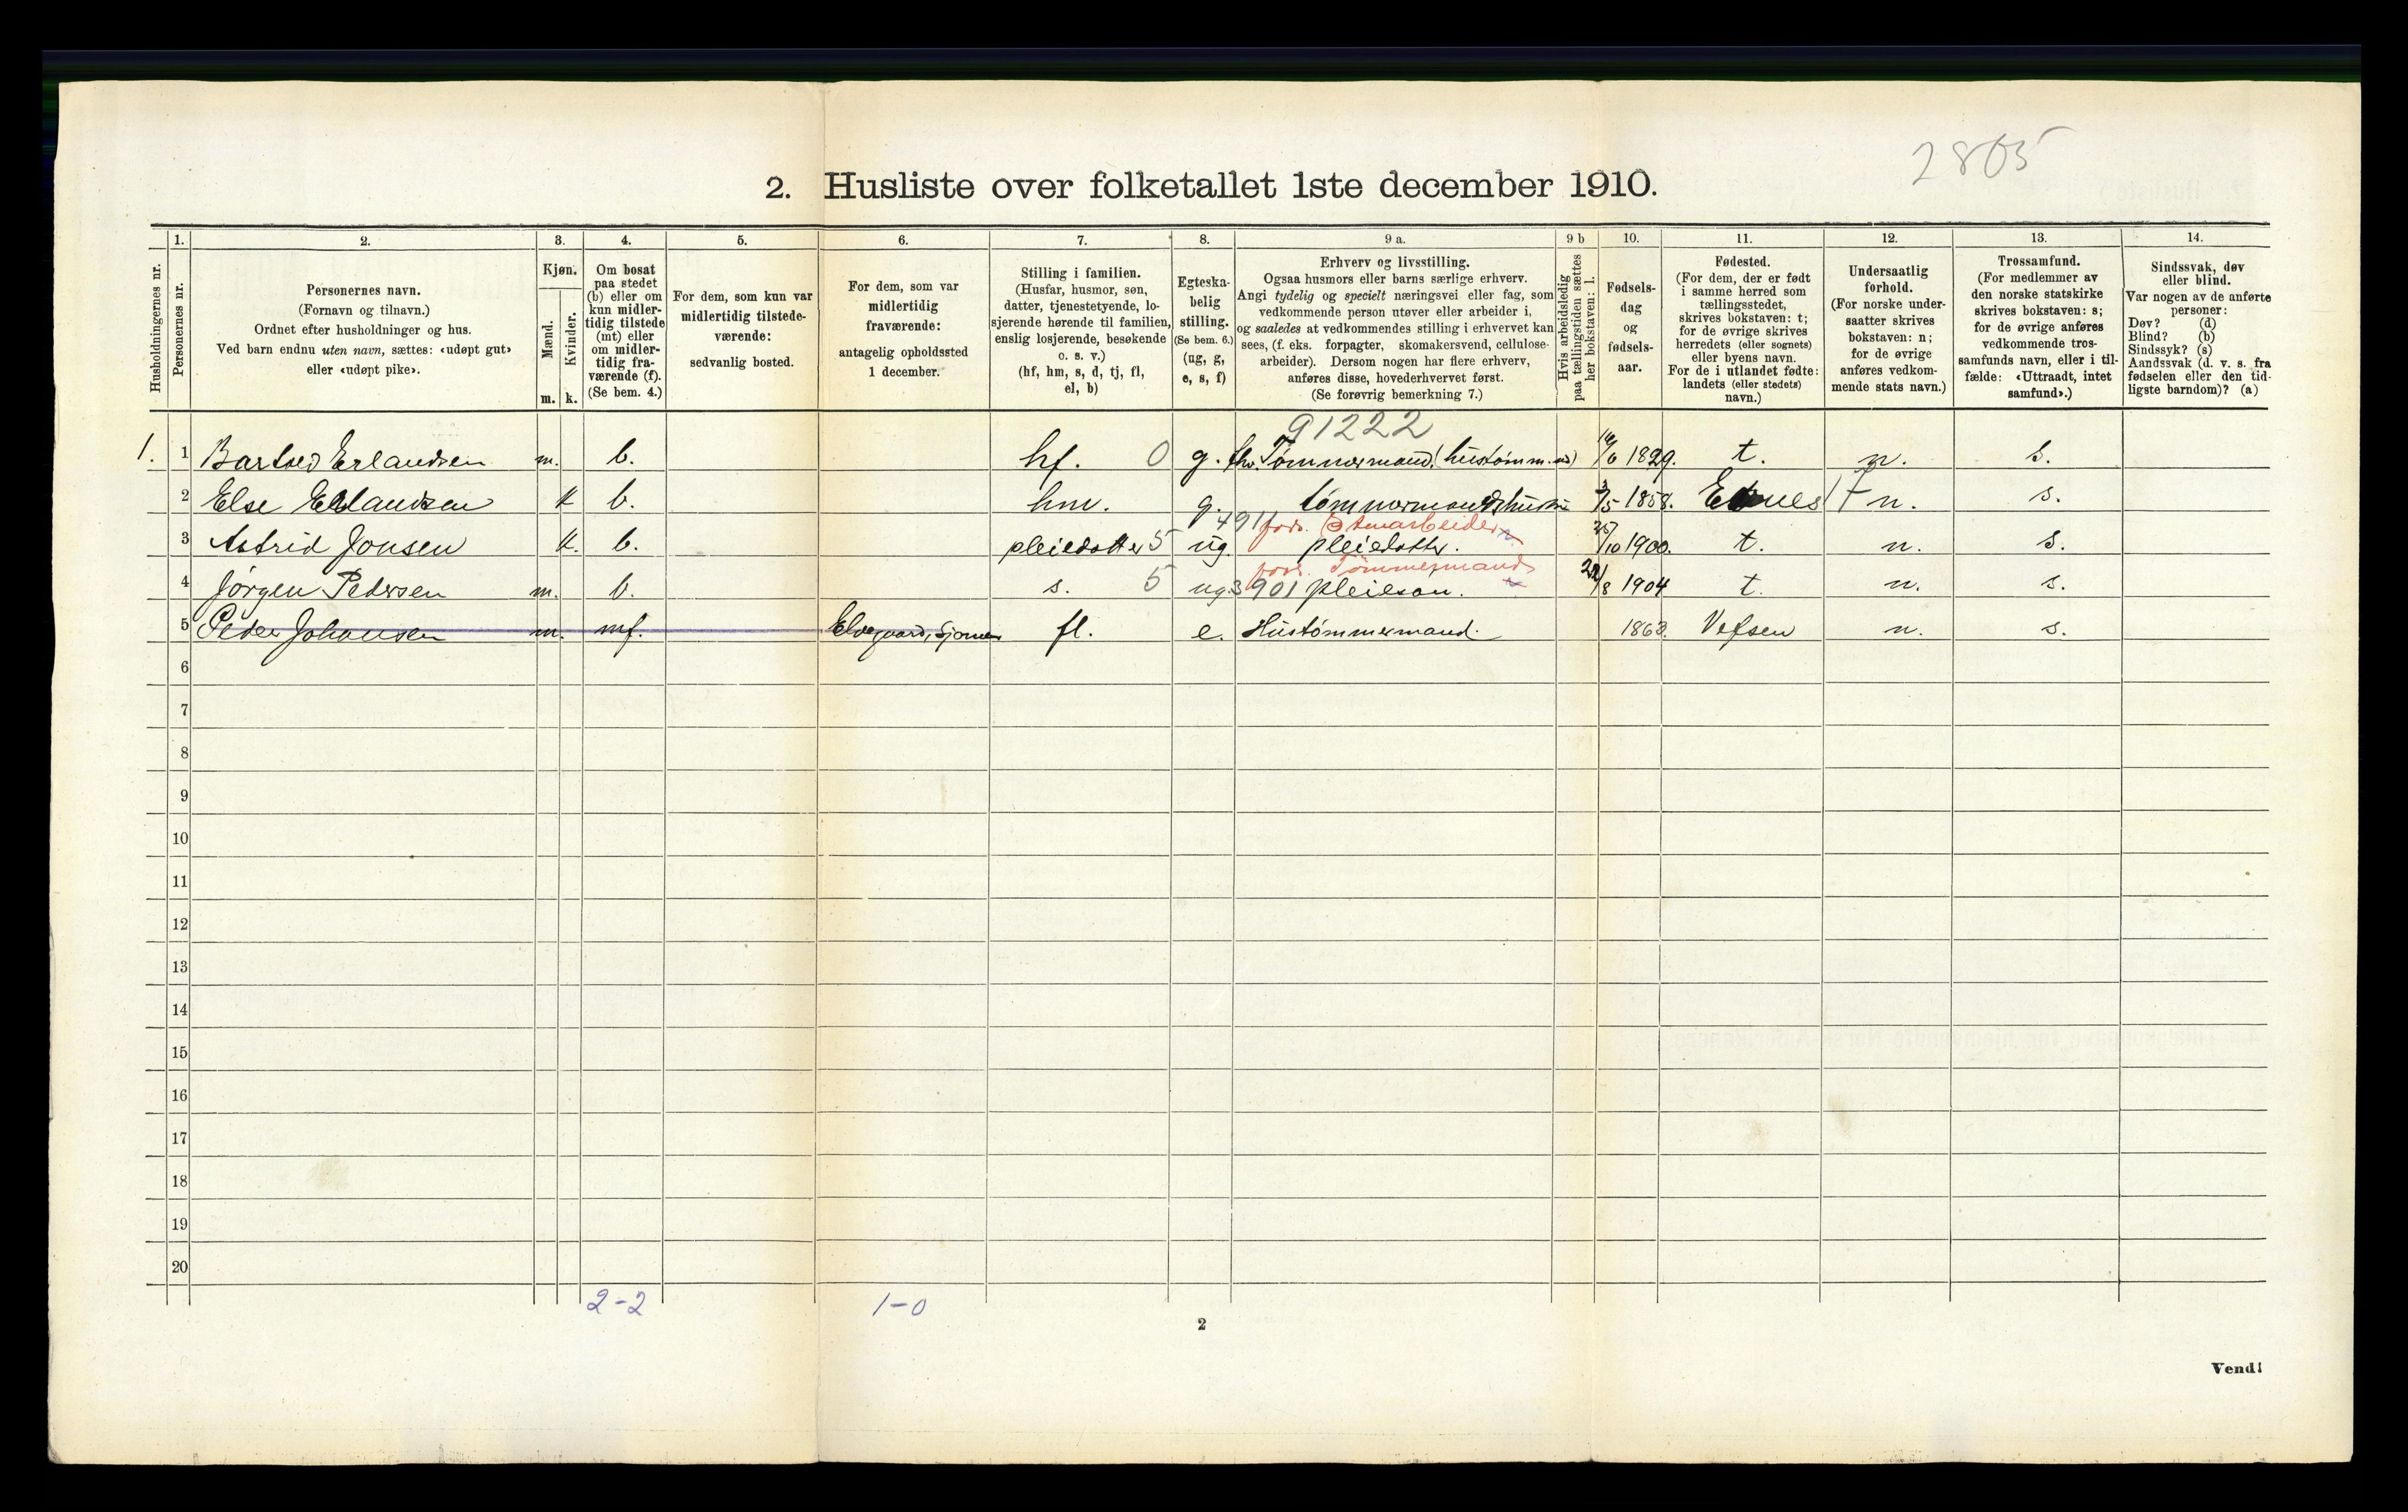 2805
2. Husliste over folketallet 1ste december 1910.
Husholdningernes nr.
1.
Personernes nr.
2.
Personernes navn.
(Fornavn og tilnavn.)
Ordnet efter husholdninger og hus.
Ved barn endnu uten navn, sættes: «udøpt gut»
eller «udøpt pike».
3.
Kjøn.
Mænd.
Kvinder.
m.
k.
4.
Om bosat
paa stedet
(b) eller om
kun midler-
tidig tilstede
(mt) eller
om midler-
tidig fra-
værende (f).
(Se bem. 4.)
5.
For dem, som kun var
midlertidig tilstede-
værende:
sedvanlig bosted.
6.
For dem, som var
midlertidig
fraværende:
antagelig opholdssted
1 december.
7.
Stilling i familien.
(Husfar, husmor, søn,
datter, tjenestetyende, lo-
sjerende hørende til familien,
enslig losjerende, besøkende
o. s. v.)
(hf, hm, s, d, tj, fl,
el, b)
8.
Egteska-
belig
stilling.
(Se bem. 6.)
(ug, g,
e, s, f)
9 a.
Erhverv og livsstilling.
Ogsaa husmors eller barns særlige erhverv.
Angi tydelig og specielt næringsvei eller fag, som
vedkommende person utøver eller arbeider i,
og saaledes at vedkommendes stilling i erhvervet kan
sees, (f. eks. forpagter, skomakersvend, cellulose-
arbeider). Dersom nogen har flere erhverv,
anføres disse, hovederhvervet først.
(Se forøvrig bemerkning 7.)
9 b
Hvis arbeidsledig
paa tællingstiden sættes
her bokstaven: l.
10.
Fødsels-
dag
og
fødsels-
aar.
11.
Fødested.
(For dem, der er født
i samme herred som
tællingsstedet,
skrives bokstaven: t;
for de øvrige skrives
herredets (eller sognets)
eller byens navn.
For de i utlandet fødte:
landets (eller stedets)
navn.)
12.
Undersaatlig
forhold.
(For norske under-
saatter skrives
bokstaven: n;
for de øvrige
anføres vedkom-
mende stats navn.)
13.
Trossamfund.
(For medlemmer av
den norske statskirke
skrives bokstaven: s;
for de øvrige anføres
vedkommende tros-
samfunds navn, eller i til-
fælde: «Uttraadt, intet
samfund».)
14.
Sindssvak, døv
eller blind.
Var nogen av de anførte
personer:
Døv? (d)
Blind? (b)
Sindssyk? (s)
Aandssvak (d. v. s. fra
fødselen eller den tid-
ligste barndom)? (a)
91222
1. 1 Bartold Erlandsen m. b. hf. 0 g. Tømmermand (hustømm. 1829. t. n. s.
2 Else Erlandsen k b. hm. g. tømmermandshustru 3/5 1858. n. s.
4911 fors. Stenarbeider
3 Astrid Jonsen k. b. pleiedatter 5 ug. pleiedatter. 25/10 1900. t. n. s.
fors. Tømmermand
4 Jørgen Pedersen m. b. s. 5 ug. 3901 pleiesøn. /8 1904 t. n. s.
5 Peder Johansen m. mf. Elvegaard, fl. e. Hustømmermand. 1863. Vefsen n. s.
6
7
8
9
10
11
12
13
14
15
16
17
18
19
20
2-2 1-0
2
Vend!